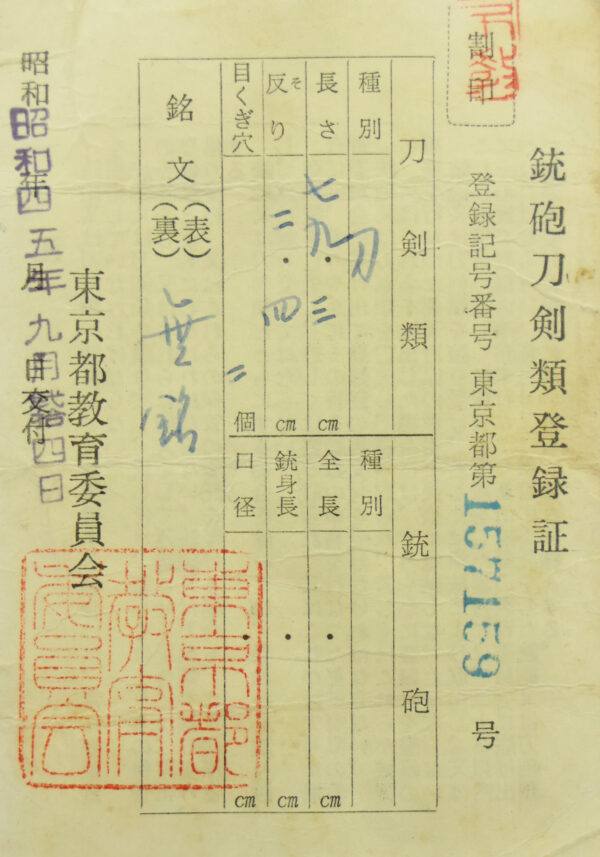 銃砲刀剣類登録証
割印
登録記号番号 東京都第157159号
刀剣類
種別 刀
長さ 七九・三 cm
反り 二・四 cm
そ
目くぎ穴 二 個
銘文 (表) (裏) 無銘
銃砲
種別
全長 ・ cm
銃身長 ・ cm
口径 ・ cm
東京都教育委員会
昭和 年 月 日交付
昭和四五年九月 四日
東京都教育委員会